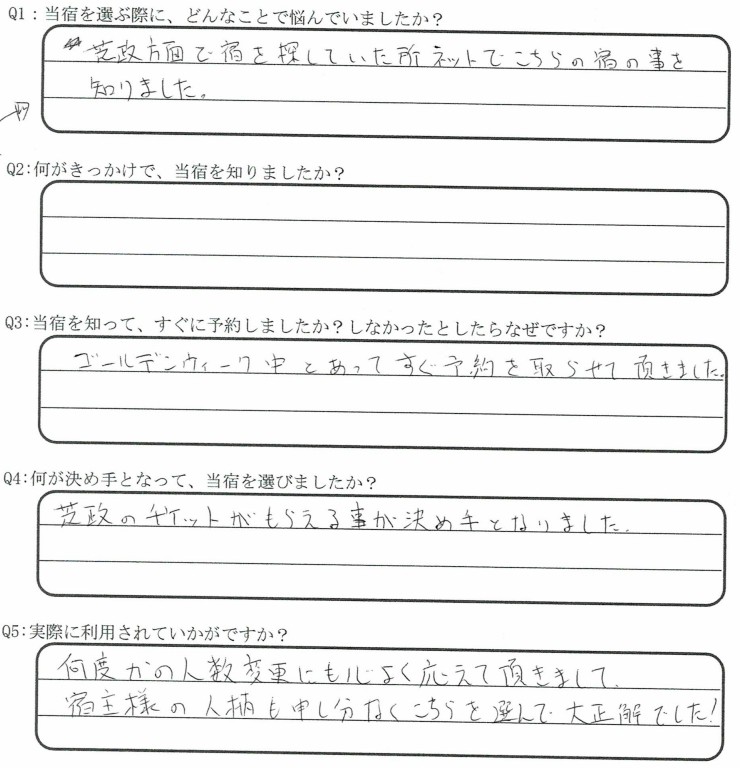 Q1：当宿を選ぶ際に、どんなことで悩んでいましたか？
芝政方面で宿を探していた所ネットでこちらの宿の事を
知りました。
Q2：何がきっかけで、当宿を知りましたか？
Q3：当宿を知って、すぐに予約しましたか？しなかったとしたらなぜですか？
ゴールデンウィーク中とあってすぐ予約を取らせて頂きました。
Q4：何が決め手となって、当宿を選びましたか？
芝政のチケットがもらえる事が決め手となりました。
Q5：実際に利用されていかがですか？
何度かの人数変更にも心よく応えて頂きまして、
宿主様の人柄も申し分なくこちらを選んで大正解でした！